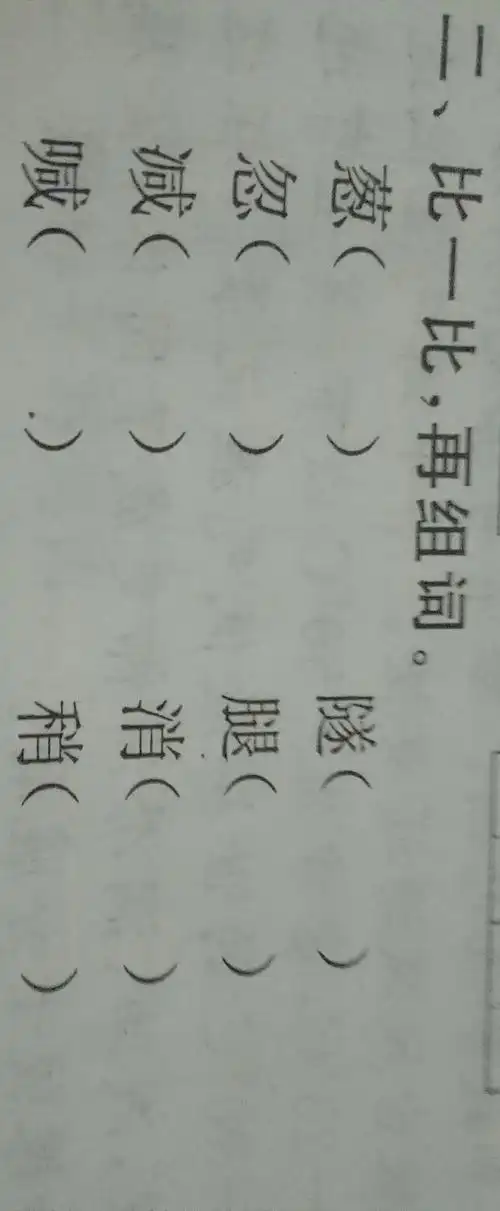 二、比一比,再组词。
葱( ) 隧( )
忽( ) 腿( )
减( ) 消( )
喊( ) 稍( )